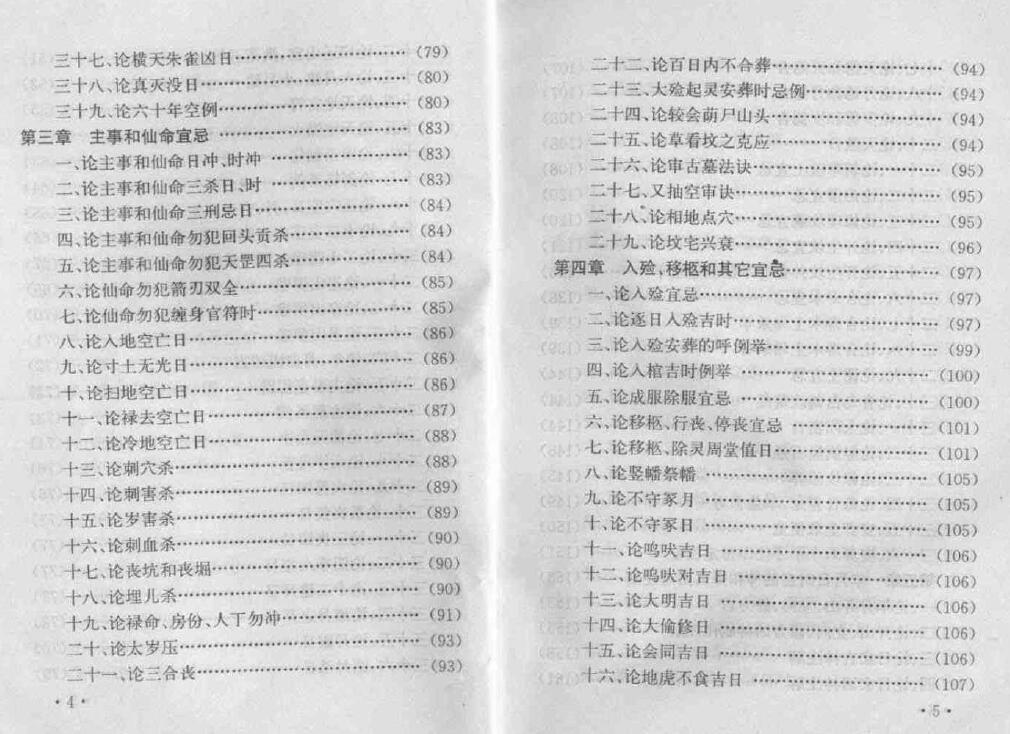 三十七、论横天朱雀凶日……………………(79)
三十八、论真灭没日……………………(80)
三十九、论六十年空例……………………(80)
第三章 主事和仙命宜忌……………………(83)
一、论主事和仙命日冲、时冲……………………(83)
二、论主事和仙命三杀日、时……………………(83)
三、论主事和仙命三刑忌日……………………(84)
四、论主事和仙命勿犯回头贡杀……………………(84)
五、论主事和仙命勿犯天罡四杀……………………(84)
六、论仙命勿犯箭刃双全……………………(85)
七、论仙命勿犯缠身官符时……………………(85)
八、论入地空亡日……………………(86)
九、论寸土无光日……………………(86)
十、论扫地空亡日……………………(86)
十一、论禄去空亡日……………………(87)
十二、论冷地空亡日……………………(88)
十三、论刺穴杀……………………(88)
十四、论刺害杀……………………(89)
十五、论岁害杀……………………(89)
十六、论刺血杀……………………(90)
十七、论丧坑和丧堀……………………(90)
十八、论埋儿杀……………………(90)
十九、论禄命、房份、人丁勿冲……………………(91)
二十、论太岁压……………………(93)
二十一、论三合丧……………………(93)
·4·
二十二、论百日内不合葬……………………(94)
二十三、大殓起灵安葬时忌例……………………(94)
二十四、论较会葫尸山头……………………(94)
二十五、论草看坟之克应……………………(94)
二十六、论审古墓法诀……………………(95)
二十七、又抽空审诀……………………(95)
二十八、论相地点穴……………………(95)
二十九、论坟宅兴衰……………………(96)
第四章 入殓、移柩和其它宜忌……………………(97)
一、论入殓宜忌……………………(97)
二、论逐日入殓吉时……………………(97)
三、论入殓安葬的呼例举……………………(99)
四、论入棺吉时例举……………………(100)
五、论成服除服宜忌……………………(100)
六、论移柩、行丧、停丧宜忌……………………(101)
七、论移柩、除灵周堂值日……………………(101)
八、论竖幡祭幡……………………(105)
九、论不守冢月……………………(105)
十、论不守冢日……………………(105)
十一、论鸣吠吉日……………………(106)
十二、论鸣吠对吉日……………………(106)
十三、论大明吉日……………………(106)
十四、论大偷修日……………………(106)
十五、论会同吉日……………………(106)
十六、论地虎不食吉日……………………(107)
·5·